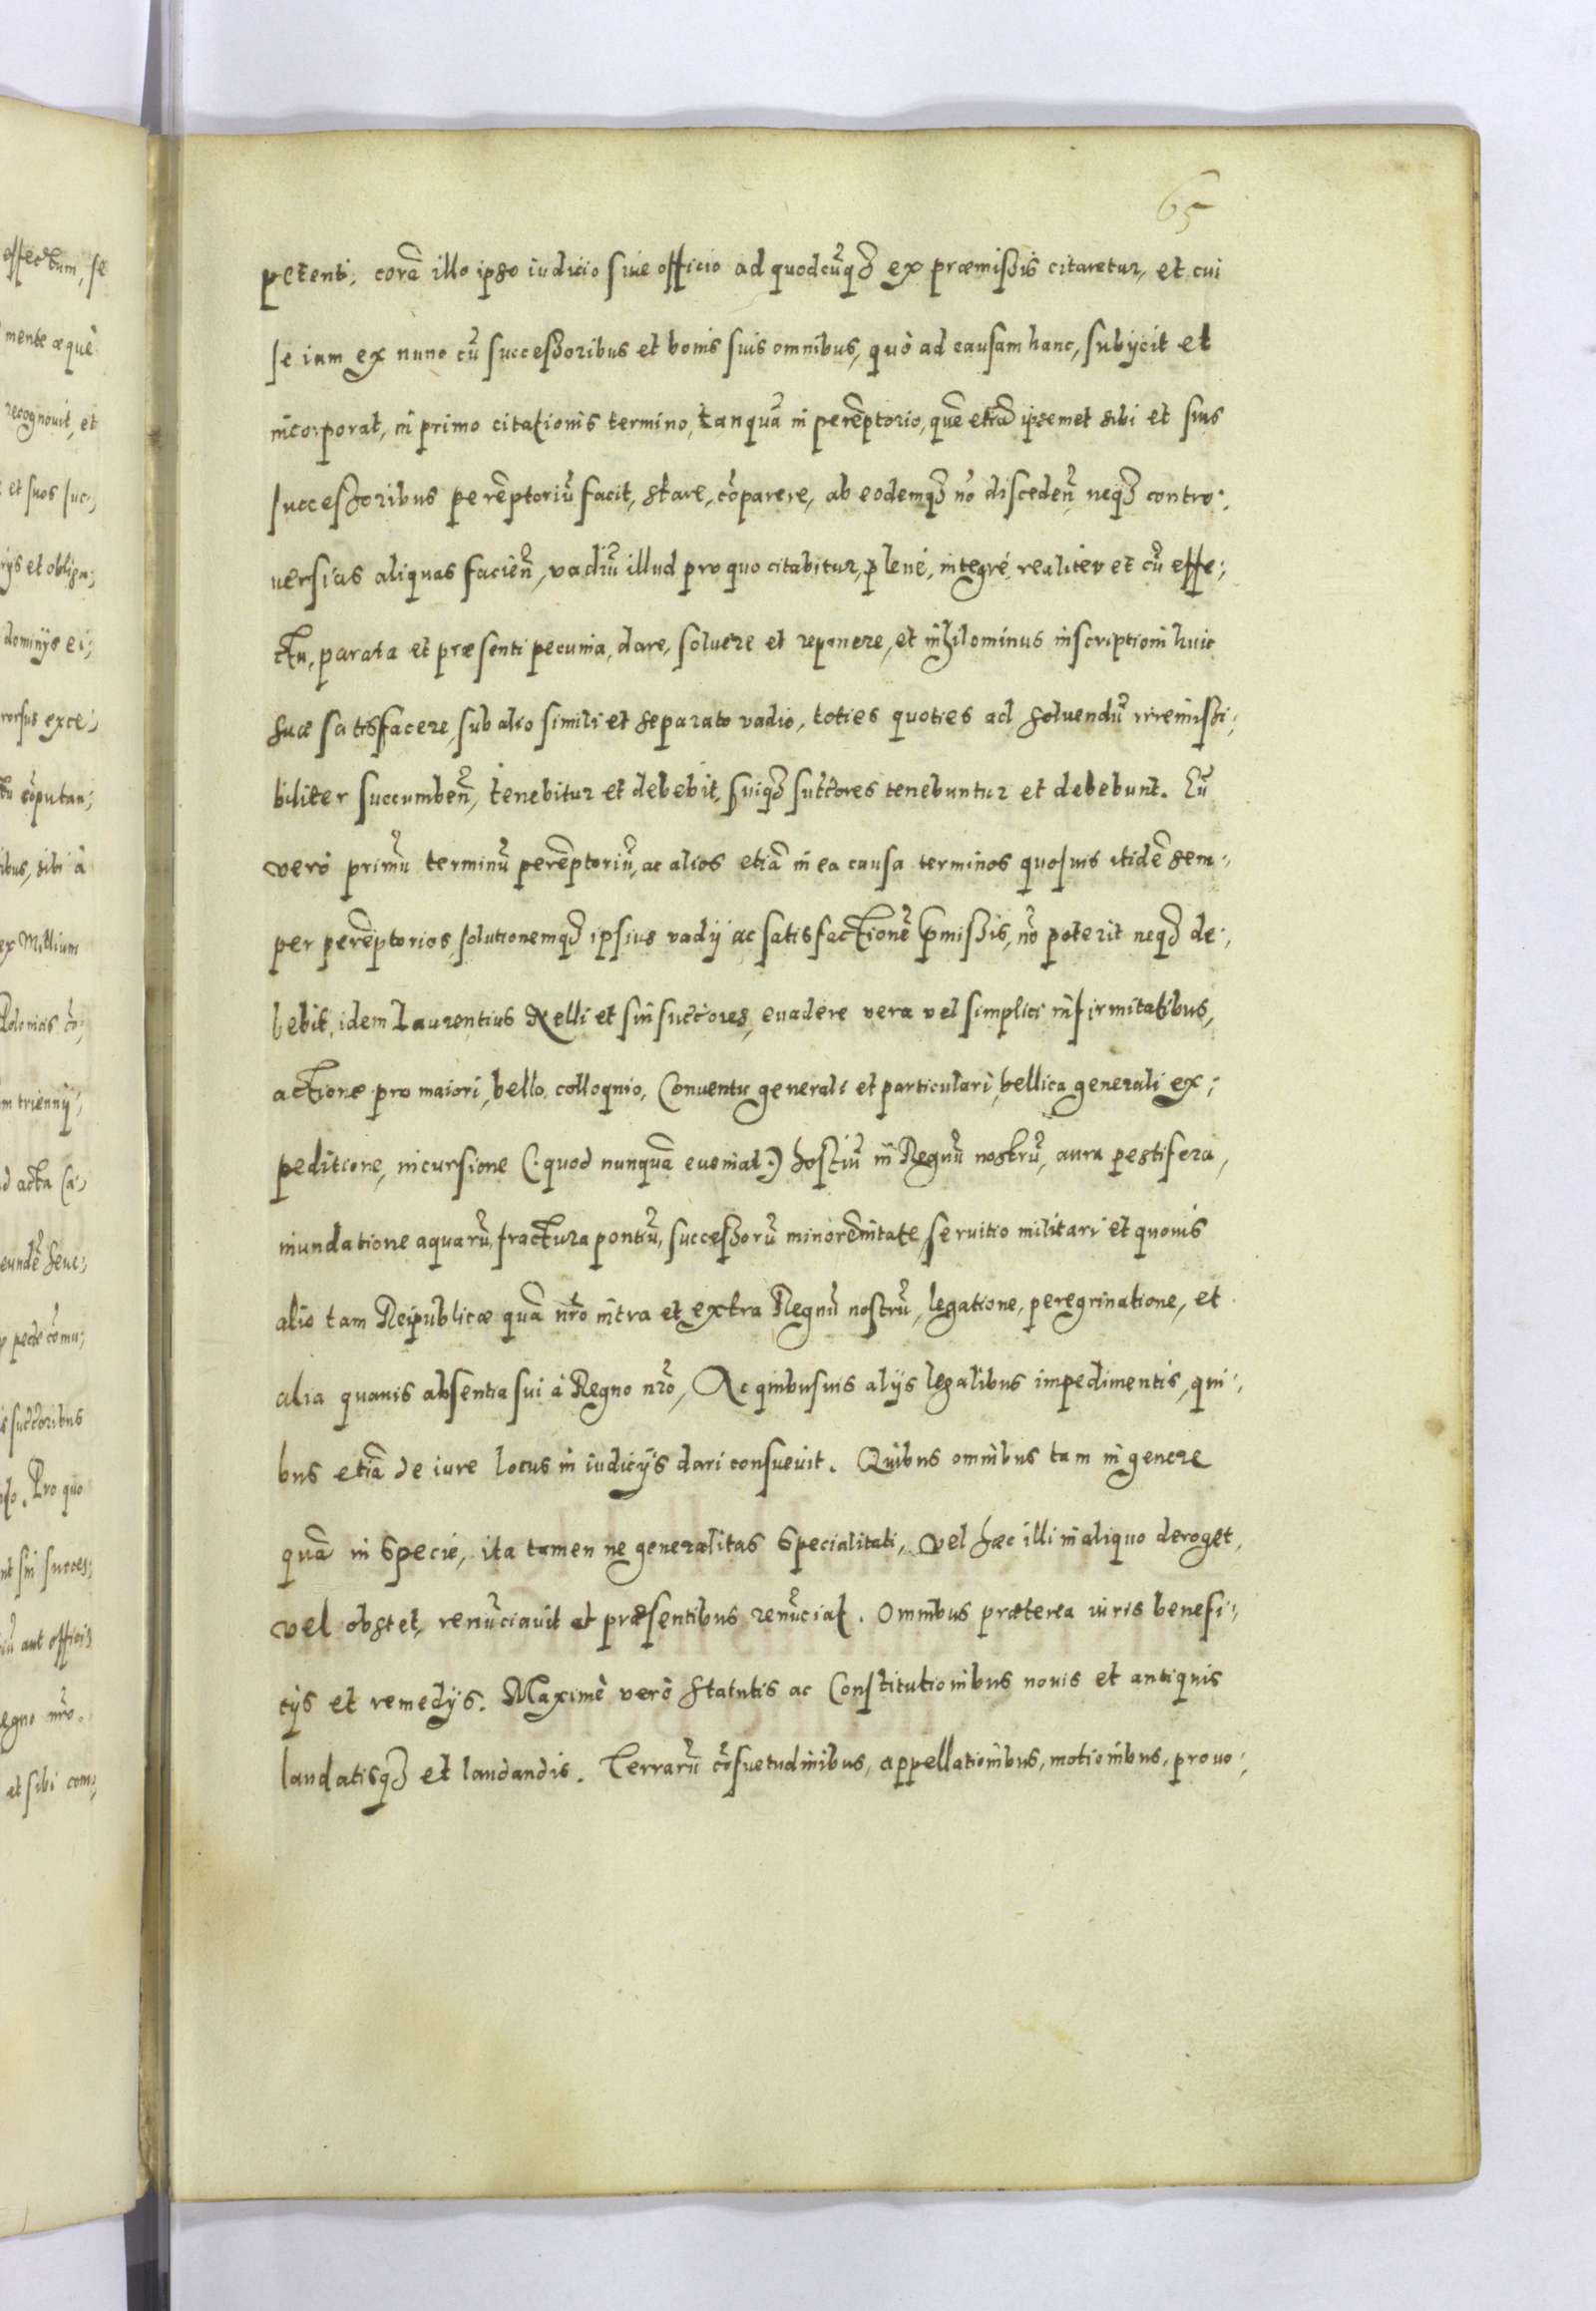 65
petenti, corā illo ipso iudicio siue officio ad quodcūqꝫ ex præmissis citaretur, et cui
se iam ex nunc cū successoribus et bonis suis omnibus, quò ad causam hanc, subijcit et
incorporat, in primo citationis termino, tanquā in perēptorio, quē etiā ipsemet sibi et suis
successoribus perēptoriū facit, stare, cōparere, ab eodemqꝫ nō disceden̄, neqꝫ contro:,
uersias aliquas facien̄, vadiū illud pro quo citabitur, plenè, integrè, realiter et cū effe:,
ctu, parata et præsenti pecunia, dare, soluere et reponere, et nihilominus inscriptioni huic
suæ satisfacere, sub alio simili et separato vadio, toties quoties ad soluendū irremissi:,
biliter succumben̄, tenebitur et debebit, suiqꝫ succ̄ores tenebuntur et debebunt. Eū
verò primū terminū perēptoriū, ac alios etiā in ea causa terminos quosuis itidē sem:,
per perēptorios, solutionemqꝫ ipsius vadij ac satisfactionē p̄missis, nō poterit neqꝫ de:,
bebit, idem Laurentius Nelli et sui succ̄ores, euadere vera vel simplici infirmitatibus,
actione pro maiori, bello, colloquio, Conuentu generali et particulari, bellica generali ex:,
peditione, incursione (: quod nunquā eueniat :) hostiū in Regnū nostrū, aura pestifera,
inundatione aquarū, fractura pontiū, successorū minorēnitate, seruitio militari et quouis
alio tam Reipublicæ quā nr̄o intra et extra Regnū nostrū, legatione, peregrinatione, et
alia quauis absentia sui à Regno nr̄o, Ac quibusuis alijs legalibus impedimentis, qui:,
bus etiā de iure locus in iudicijs dari consueuit. Quibus omnibus tam in genere
quā in specie, ita tamen ne generalitas specialitati, vel hæc illi in aliquo deroget,
vel obstet, renūciauit et præsentibus renūciat. Omnibus præterea iuris benefi:,
cijs et remedijs. Maximè verò statutis ac Constitutionibus nouis et antiquis
laudatisqꝫ et laudandis. Terrarū cōsuetudinibus, appellationibus, motionibus, prouo:,